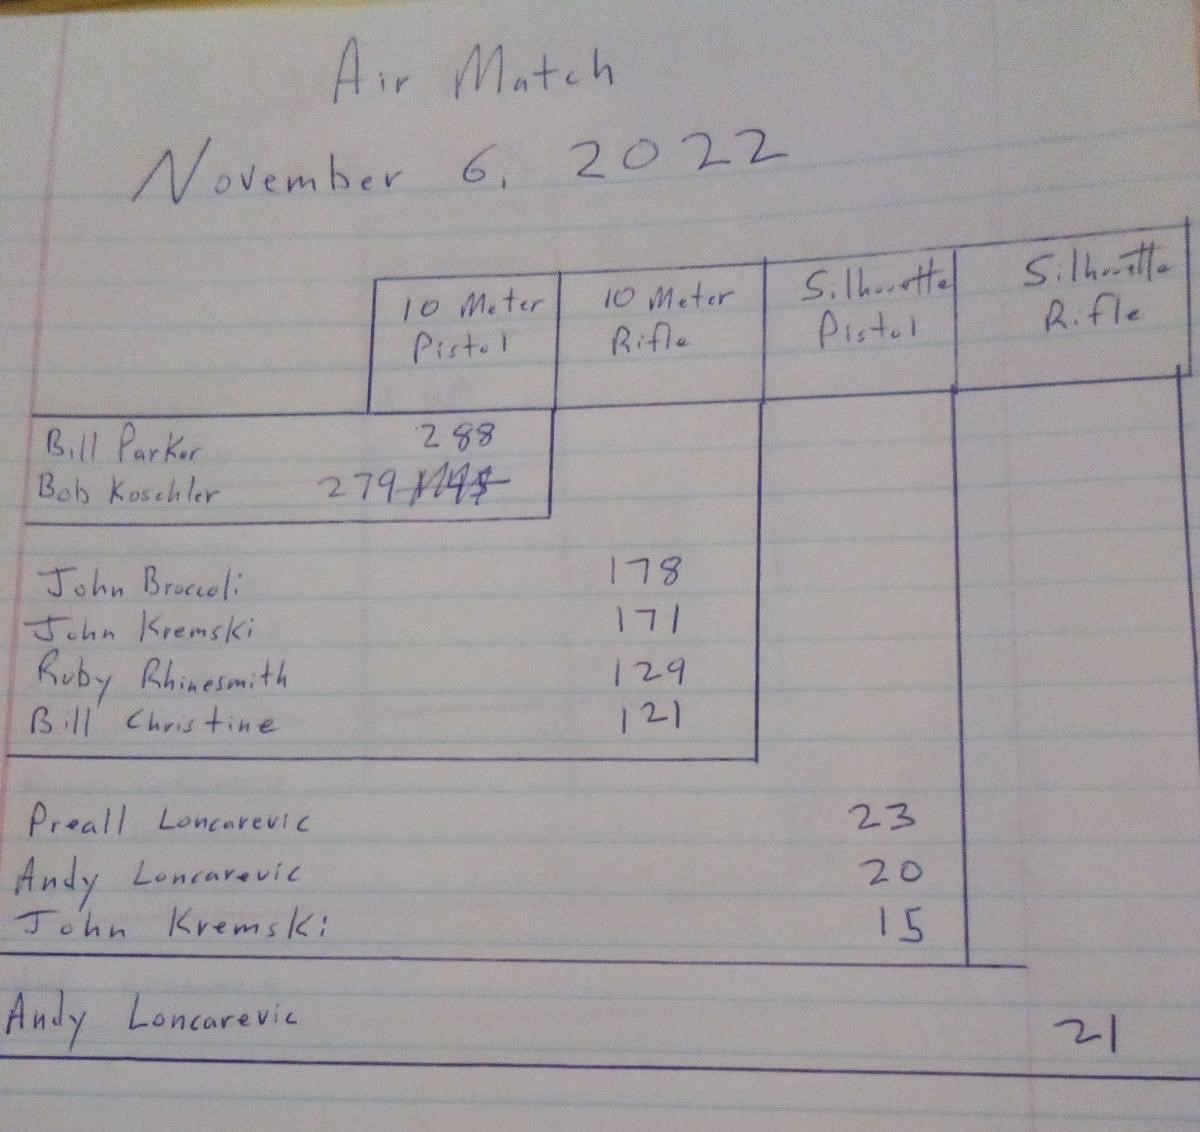 Air Match
November 6, 2022
10 Meter Pistol
10 Meter Rifle
Silhouette Pistol
Silhouette Rifle
Bill Parker 288
Bob Koschler 279
John Broccoli 178
John Kremski 171
Ruby Rhinesmith 129
Bill Christine 121
Preall Loncarevic 23
Andy Loncarevic 20
John Kremski 15
Andy Loncarevic 21